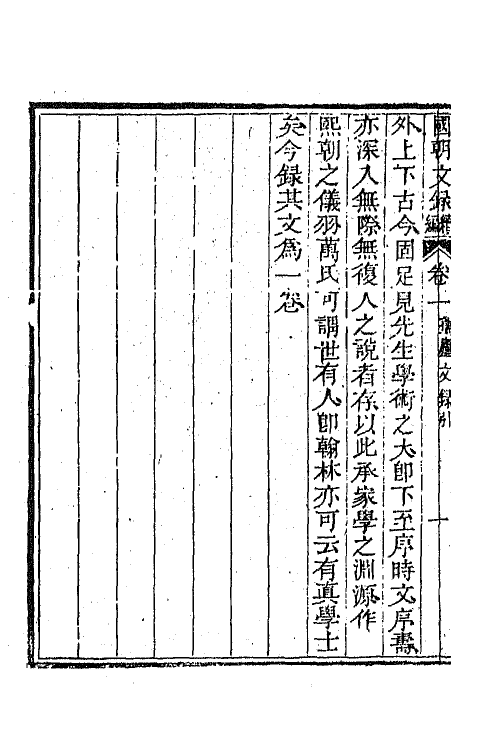 國朝文錄續編 卷一 文錄引 一
外上下古今固足見先生學術之大卽下至序時文序壽
亦深入無際無復人之說者存以此承家學之淵源作
熙朝之儀羽萬氏可謂世有人卽翰林亦可云有眞學士
矣今錄其文爲一卷